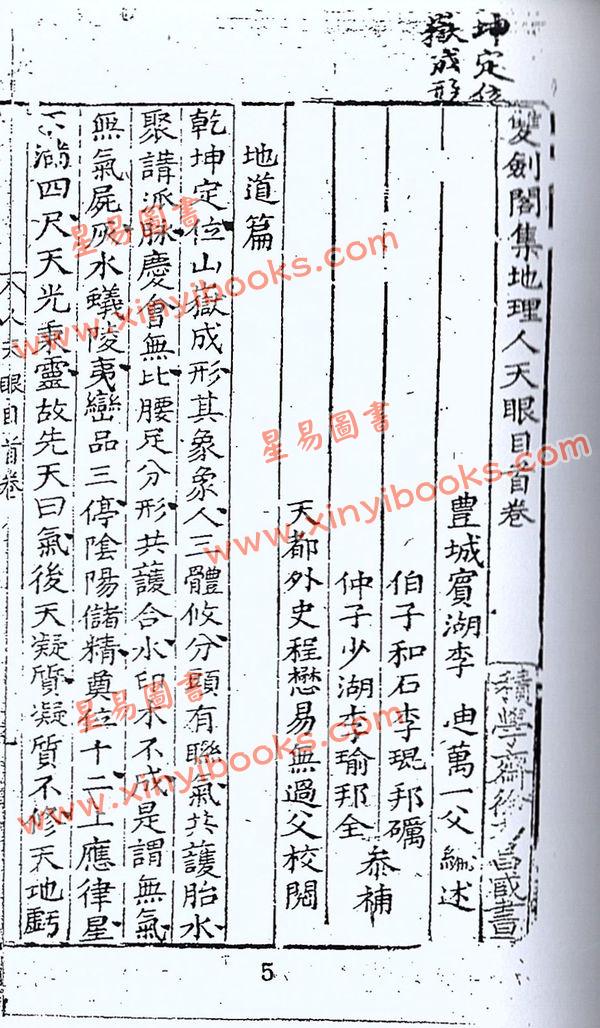 坤定位
嶽成形
雙劍閣集地理人天眼目首卷
積學齋徐乃昌藏書
豊城賓湖李 迪萬一父 編述
伯子和石李琨邦礪
仲子少湖李瑜邦全
叅補
天都外史程懋易無過父校閱
地道篇
乾坤定位山嶽成形其象象人三體攸分頭有聯氣共護胎水
聚講派脉慶會無比腰足分形共護合水印木不成是謂無氣
無氣屍灰水蟻陵夷巒品三停陰陽儲精奠位十二上應律星
不滿四尺天光秉靈故先天曰氣後天凝質凝質不修天地虧
人天眼目首卷
5
星易圖書
www.xinyibooks.com
星易圖書
www.xinyibooks.com
星易圖書
www.xinyibooks.com
星易圖書
www.xinyibooks.com